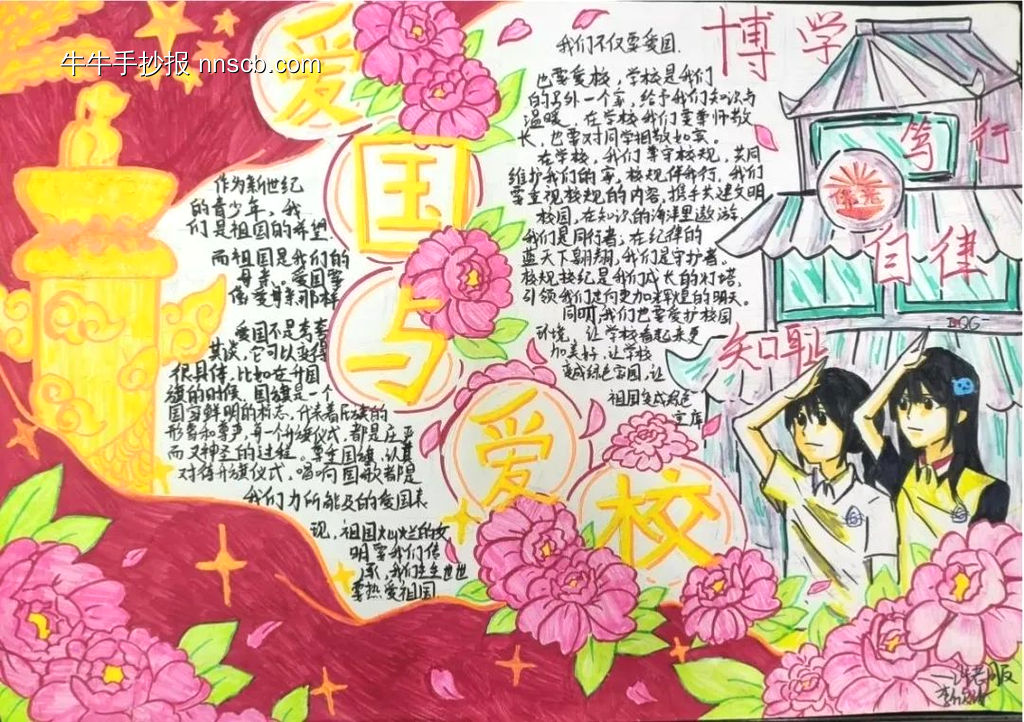 牛牛手抄报 nnscb.com
爱
国
与
爱
校
作为新世纪
的青少年，我
们是祖国的希望.
而祖国是我们的
母亲。爱国要
像爱母亲那样
爱国不是高高
其谈，它可以变得
很具体，比如在升国
旗的时候，国旗是一个
国家鲜明的标志，代表着民族的
形象和尊严，每一个升旗仪式，都是庄严
而又神圣的过程。尊重国旗，认真
对待升旗仪式，唱响国歌都是
我们力所能及的爱国表
现，祖国灿烂的文
明要我们传
承，我们生生世世
要热爱祖国
我们不仅要爱国.
也要爱校，学校是我们
的另外一个家，给予我们知识与
温暖，在学校我们要尊师敬
长，也要对同学相敬如宾。
在学校，我们尊守校规，共同
维护我们的家，校规伴我行，我们
要重视校规的内容，携手共建文明
校园，在知识的海洋里遨游，
我们是同行者，在纪律的
蓝天下翱翔，我们是守护者。
校规校纪是我们成长的灯塔，
引领我们走向更加辉煌的明天。
同时，我们也要爱护校园
环境，让学校看起来更
加美好，让学校
变成绿色家园，让
祖国变成绿色
宝库
博学
笃行
自律
知耻